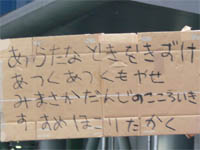 あらたなときをきずけ
あつくあつくもやせ
みまさかだんじのこころいき
おもあほこりたかく